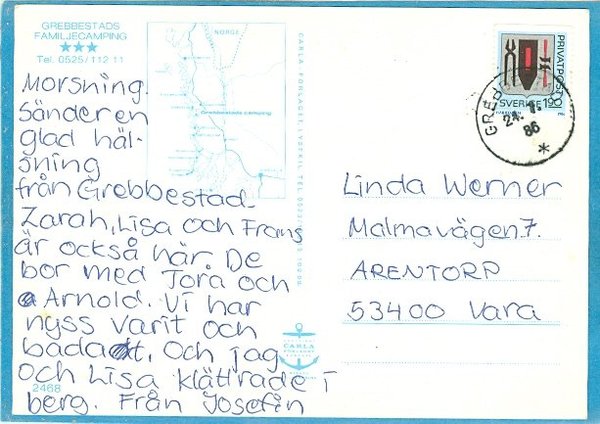 GREBBESTADS
FAMILJECAMPING
★★★
Tel. 0525/112 11
Morsning.
Sänder en
glad häl-
sning
från Grebbestad.
Zarah, Lisa och Frans
är också här. De
bor med Tora och
Arnold. Vi har
nyss varit och
badat, och jag
och Lisa klättrade i
berg. Från Josefin
2468
NORGE
Grebbestads camping
CARLA
PRIVATPOST
SVERIGE 190
GREB
24.7.
86
*
Linda Werner
Malmavägen 7.
ARENTORP
53400 Vara